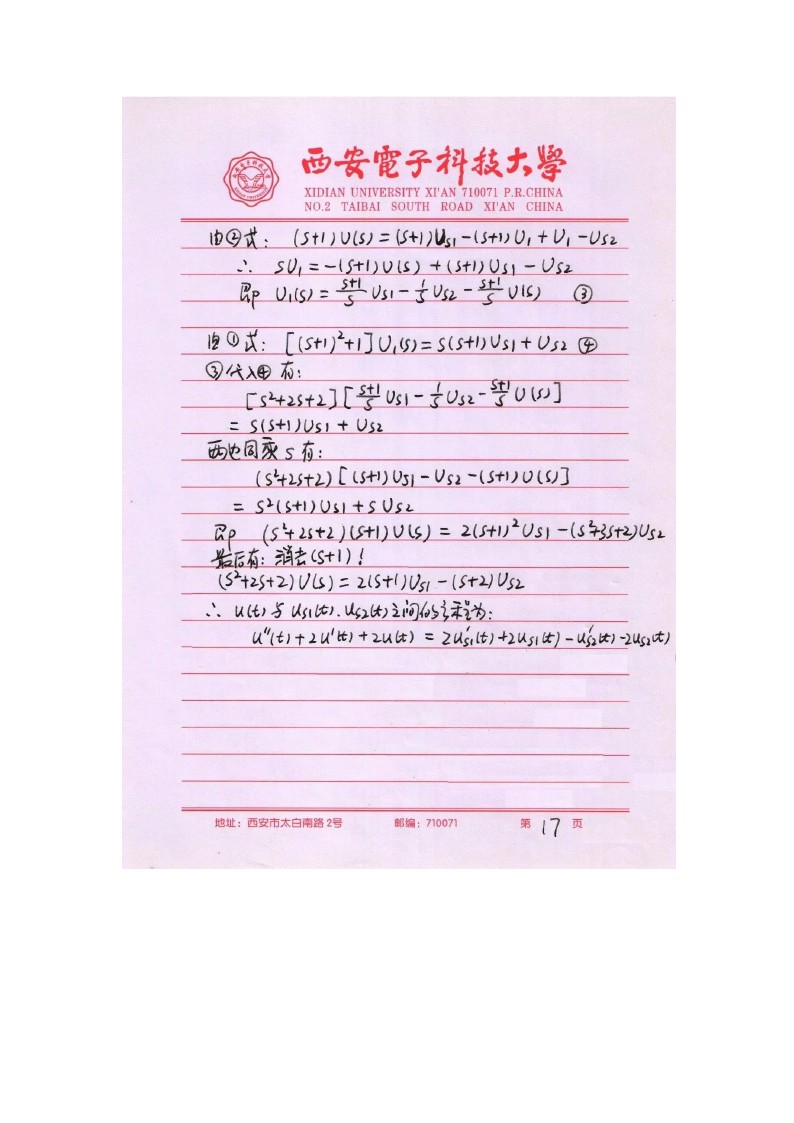 西安電子科技大學
XIDIAN UNIVERSITY XI'AN 710071 P.R.CHINA
NO.2 TAIBAI SOUTH ROAD XI'AN CHINA
由②式: (S+1)U(s) = (S+1)U_{S1} - (S+1)U_1 + U_1 - U_{S2}
∴ SU_1 = -(S+1)U(s) + (S+1)U_{S1} - U_{S2}
即 U_1(s) = \frac{S+1}{S} U_{S1} - \frac{1}{S} U_{S2} - \frac{S+1}{S} U(s) ③
由①式: [(S+1)^2+1]U_1(s) = S(S+1)U_{S1} + U_{S2} ④
③代入④有:
[S^2+2S+2][\frac{S+1}{S} U_{S1} - \frac{1}{S} U_{S2} - \frac{S+1}{S} U(s)]
= S(S+1)U_{S1} + U_{S2}
两边同乘S有:
(S^2+2S+2)[(S+1)U_{S1} - U_{S2} - (S+1)U(s)]
= S^2(S+1)U_{S1} + S U_{S2}
即 (S^2+2S+2)(S+1)U(s) = 2(S+1)^2 U_{S1} - (S^2+3S+2)U_{S2}
最后有: 消去(S+1)!
(S^2+2S+2)U(s) = 2(S+1)U_{S1} - (S+2)U_{S2}
∴ u(t)与u_{S1}(t).u_{S2}(t)之间的方程为:
u''(t)+2u'(t)+2u(t) = 2u'_{S1}(t)+2u_{S1}(t)-u'_{S2}(t)-2u_{S2}(t)
地址: 西安市太白南路2号 邮编: 710071 第 17 页